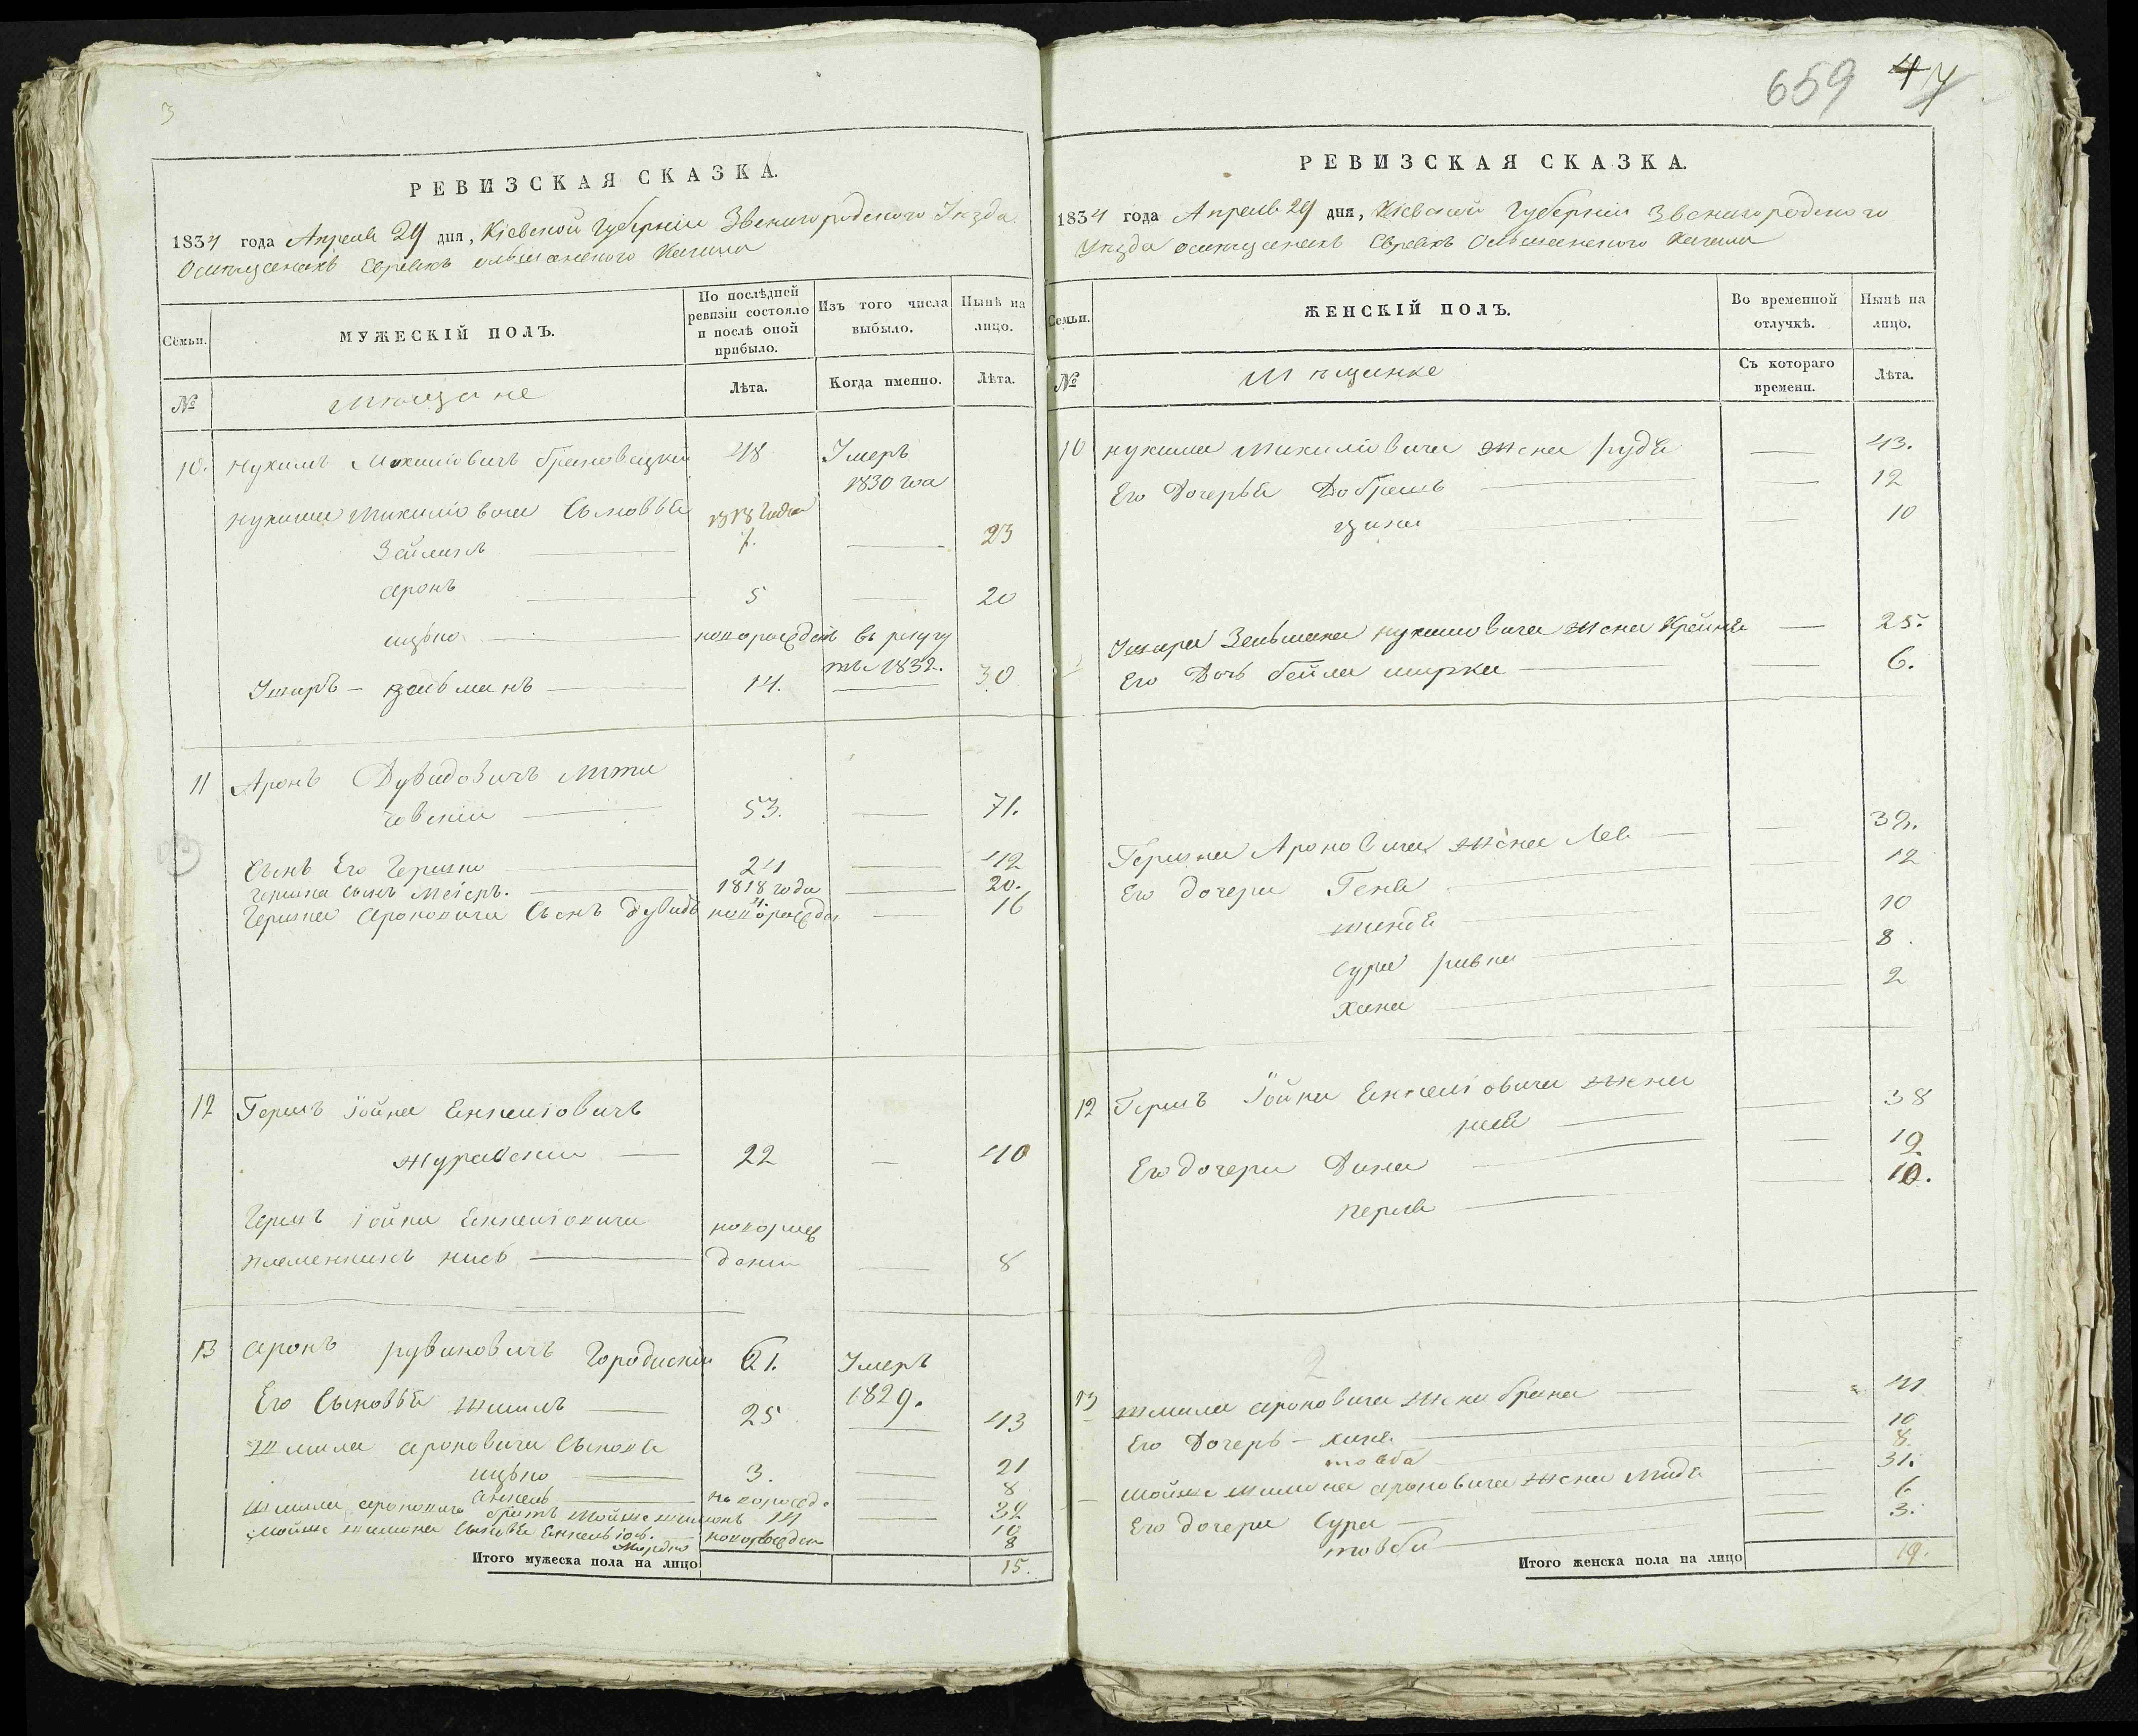 3
РЕВИЗСКАЯ СКАЗКА.
1834 года Апреля 29 дня, Кіевской Губерніи Звенигородского Уѣзда
Евреяхъ Ольшанского Кагала
Семьи.
МУЖЕСКІЙ ПОЛЪ.
По послѣдней ревизіи состояло и послѣ оной прибыло.
Изъ того числа выбыло.
Нынѣ на лицо.
№
Мещане
Лѣта.
Когда именно.
Лѣта.
10. Нухимъ 48 Умеръ
1830 года
Нухима Сыновья 1818 года
7. 23
Аронъ 5 20
Ицько новорожден въ рекру
ты 1832.
Зельманъ 14. 30
11 Аронъ Дувидовичъ Лити
новскій 53. 71.
Сынъ Его Гершко 24 42
Гершка Сынъ Меіеръ. 1818 года 20.
4.
Гершка Ароновича Сынъ Дувидъ новорожде 16
12 Гершъ Іойна Енкеліовичъ
Журавскій 22 40
Гершъ Іойна Енкеліовича новорож
племенникъ дени 8
13 Аронъ Рувиновичъ Городискій 61. Умеръ
1829.
Его Сыновья Шмилъ 25 43
Шмила Ароновича Сыновья
ицько 3. 21
Анкель новорожде 8
Шмила Ароновича братъ Мойше 14 32
Мойше Сыновья Енкель Іос. новорожден 10
Мордко 8
Итого мужеска пола на лицо 15.
659 47
РЕВИЗСКАЯ СКАЗКА.
1834 года Апреля 29 дня, Кіевской Губерніи Звенигородского
Уѣзда Евреяхъ Ольшанского Кагала
Семьи.
ЖЕНСКІЙ ПОЛЪ.
Во временной отлучкѣ.
Нынѣ на лицо.
№
Мѣщанке
Съ котораго времени.
Лѣта.
10 Нухима жена Рудя 43.
Его Дочерья Добришъ 12
Цина 10
Зельмана Нухимовича жена Крейня 25.
Его Дочь бейла ширка 6.
Гершка Ароновича жена Лея 39.
Его дочери Геня 12
миндя 10
Сура ривка 8.
Хана 2
12 Гершъ Іойна Енкеліовича жена 38
Его дочери Дина 19
перля 10.
13 Шмила Ароновича жена брана 41
Его Дочерь Хиня 10
товба 8.
Мойше Ароновича жена 31.
Его дочери Сура 6
товба 3.
Итого женска пола на лицо 19.